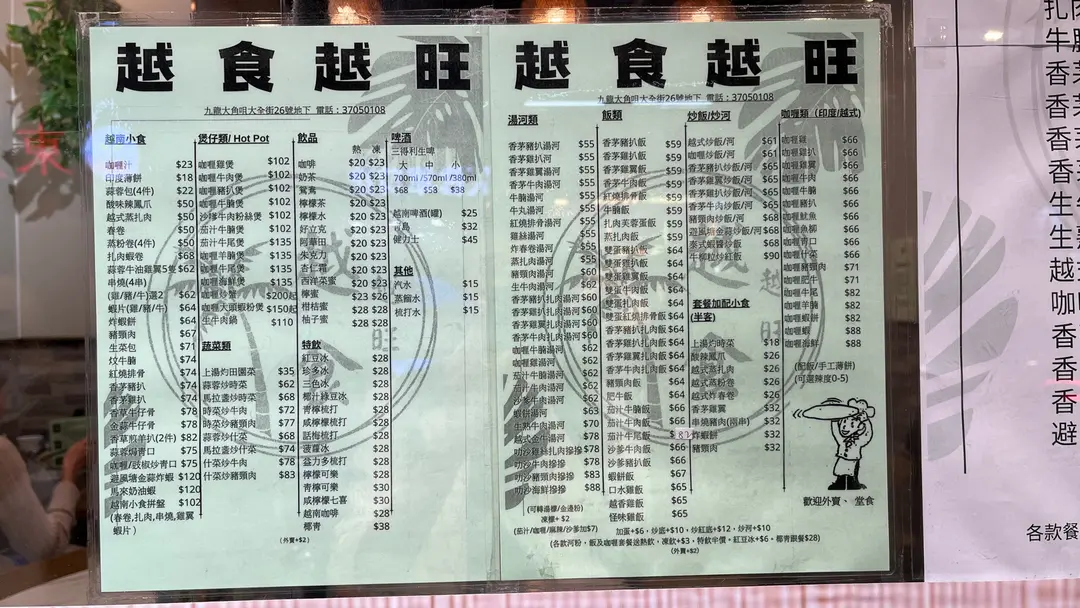 越食越旺
九龍大角咀大全街26號地下 電話：37050108
越南小食
咖喱汁 $23
印度薄餅 $18
蒜蓉包(4件) $22
酸味辣鳳爪 $50
越式蒸扎肉 $50
春卷 $50
蒸粉卷(4件) $50
扎肉蝦卷 $68
蒜蓉牛油雞翼5隻 $62
串燒(4串)
(雞/豬/牛)選2 $62
蝦片(雞/豬/牛) $64
炸蝦餅 $64
豬頸肉 $67
生菜包 $71
炆牛腩 $74
紅燒排骨 $74
香茅豬扒 $74
香茅雞扒 $74
香草牛仔骨 $78
金蒜牛仔骨 $78
香草煎羊扒(2件) $82
蒜蓉焗青口 $75
咖喱/豉椒炒青口 $75
避風塘金蒜炸蝦 $120
馬來奶油蝦 $120
越南小食拼盤 $102
(春卷,扎肉,串燒,雞翼
蝦片)
煲仔類/ Hot Pot
咖喱雞煲 $102
咖喱牛肉煲 $102
咖喱豬扒煲 $102
咖喱牛腩煲 $102
沙嗲牛肉粉絲煲 $102
茄汁牛腩煲 $102
茄汁牛尾煲 $135
咖喱羊腩煲 $135
咖喱牛尾煲 $135
咖喱海鮮煲 $135
咖喱炒蟹 $200起
咖喱大頭蝦粉煲 $150起
生牛肉鍋 $110
蔬菜類
上湯灼田園菜 $35
蒜蓉炒時菜 $62
馬拉盞炒時菜 $68
時菜炒牛肉 $72
時菜炒豬頸肉 $77
蒜蓉炒什菜 $68
馬拉盞炒什菜 $74
什菜炒牛肉 $78
什菜炒豬頸肉 $83
飲品
熱 凍
咖啡 $20 $23
奶茶 $20 $23
鴛鴦 $20 $23
檸檬茶 $20 $23
檸檬水 $20 $23
好立克 $20 $23
阿華田 $20 $23
朱克力 $20 $23
杏仁霜 $20 $23
西洋菜蜜 $20 $23
檸蜜 $23 $26
柑桔蜜 $28 $28
柚子蜜 $28 $28
特飲
紅豆冰 $28
珍多冰 $28
三色冰 $28
椰汁綠豆冰 $28
青檸梳打 $28
咸檸梳打 $28
話梅梳打 $28
菠蘿冰 $28
益力多梳打 $28
檸檬可樂 $28
青檸可樂 $30
咸檸檬七喜 $30
越南咖啡 $28
椰青 $38
(外賣+$2)
啤酒
三得利生啤
大 中 小
700ml /570ml /380ml
$68 $58 $38
越南啤酒(罐) $25
$32
健力士 $45
其他
汽水 $15
蒸餾水 $15
梳打水 $15
越食越旺
九龍大角咀大全街26號地下 電話：37050108
湯河類
香茅豬扒湯河 $55
香茅雞扒湯河 $55
香茅雞翼湯河 $55
香茅牛肉湯河 $55
牛腩湯河 $55
牛丸湯河 $55
紅燒排骨湯河 $55
雞絲湯河 $55
炸春卷湯河 $55
蒸扎肉湯河 $55
豬頸肉湯河 $60
生牛肉湯河 $60
香茅豬扒扎肉湯河 $60
香茅雞扒扎肉湯河 $60
香茅雞翼扎肉湯河 $60
香茅牛肉扎肉湯河 $60
咖喱牛腩湯河 $62
咖喱雞湯河 $62
茄汁牛腩湯河 $62
茄汁牛肉湯河 $62
沙爹牛肉湯河 $62
蝦餅湯河 $63
生熟牛肉湯河 $70
越式金牛湯河 $78
叻沙雞絲扎肉摻摻 $78
叻沙牛肉摻摻 $78
叻沙豬頸肉摻摻 $83
叻沙海鮮摻摻 $88
(可轉湯檬/金邊粉)
凍檬+ $2
(茄汁/咖喱/麻辣/沙爹加$7)
飯類
香茅豬扒飯 $59
香茅雞扒飯 $59
香茅雞翼飯 $59
香茅牛肉飯 $59
紅燒排骨飯 $59
牛腩飯 $59
扎肉芙蓉蛋飯 $59
蒸扎肉飯 $59
雙蛋豬扒飯 $64
雙蛋雞扒飯 $64
雙蛋雞翼飯 $64
雙蛋牛肉飯 $64
雙蛋扎肉飯 $64
雙蛋紅燒排骨飯 $64
香茅豬扒扎肉飯 $64
香茅雞扒扎肉飯 $64
香茅雞翼扎肉飯 $64
香茅牛肉扎肉飯 $64
豬頸肉飯 $64
肥牛飯 $64
茄汁牛腩飯 $66
茄汁牛肉飯 $66
茄汁牛尾飯 $83
沙爹牛肉飯 $66
沙爹豬扒飯 $66
蝦餅飯 $67
口水雞飯 $65
越香雞飯 $65
怪味雞飯 $65
炒飯/炒河
越式炒飯/河 $61
咖喱炒飯/河 $61
香茅豬扒炒飯/河 $65
香茅雞翼炒飯/河 $65
香茅雞扒炒飯/河 $65
香茅牛肉炒飯/河 $65
豬頸肉炒飯/河 $68
避風塘金蒜炒飯/河 $68
泰式蝦醬炒飯 $68
牛柳粒炒紅飯 $90
套餐加配小食
(半客)
上湯灼時菜 $18
酸辣鳳爪 $26
越式蒸扎肉 $26
越式蒸粉卷 $26
越式炸春卷 $26
香茅雞翼 $32
串燒豬肉(兩串) $32
炸蝦餅 $32
豬頸肉 $32
咖喱類（印度/越式)
咖喱雞 $66
咖喱雞扒 $66
咖喱雞翼 $66
咖喱牛肉 $66
咖喱牛腩 $66
咖喱豬扒 $66
咖喱魷魚 $66
咖喱魚柳 $66
咖喱青口 $66
咖喱什菜 $66
咖喱豬頸肉 $71
咖喱肥牛 $71
咖喱牛尾 $82
咖喱羊腩 $82
咖喱蝦餅 $82
咖喱蝦 $88
咖喱海鮮 $88
(配飯/手工薄餅)
(可選辣度0-5)
歡迎外賣、 堂食
加蛋+$6，炒底+$10，炒紅底+$12，炒河+$10
(各款河粉，飯及咖喱套餐送熱飲，凍飲+$3，特飲半價。紅豆冰+$6。椰青跟餐$28)
(外賣+$2)
越食越旺
各款餐